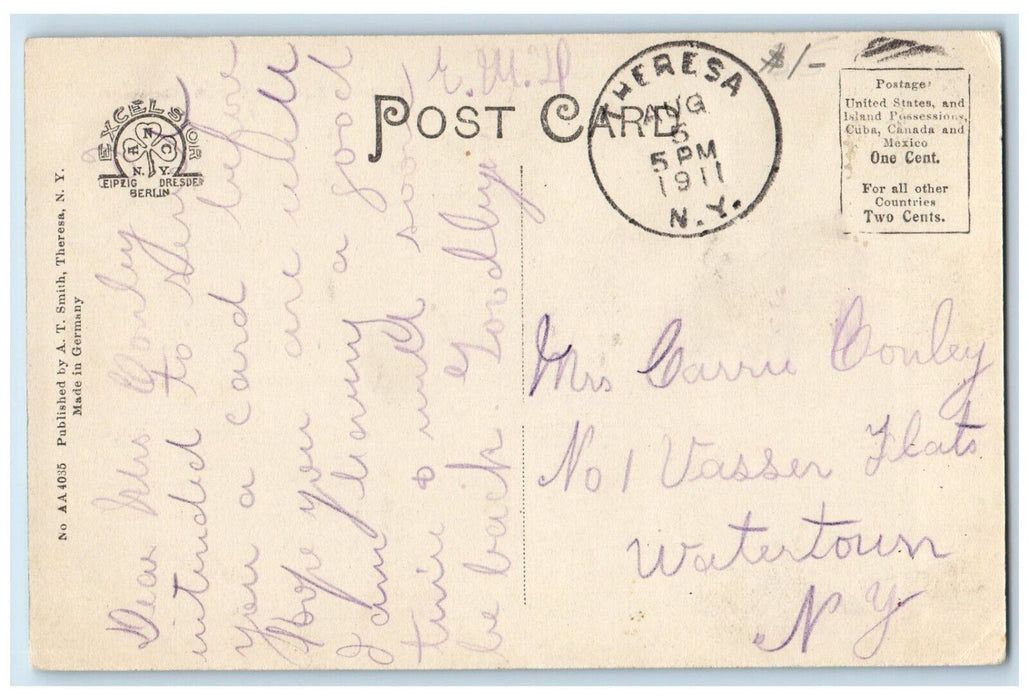 EXCELSIOR
A N C
N. Y.
LEIPZIG DRESDEN
BERLIN
POST CARD
THERESA
AUG
5
5 PM
1911
N.Y.
$1-
Postage
United States, and
Island Possessions,
Cuba, Canada and
Mexico
One Cent.
For all other
Countries
Two Cents.
No AA4035 Published by A. T. Smith, Theresa, N. Y.
Made in Germany
Dear Mrs Conley I
intended to send
you a card before
Hope you are well
I am having a good
time & will soon
be back Goodbye
E. M. H
Mrs Carrie Conley
No 1 Vasser Flats
Watertown
N Y